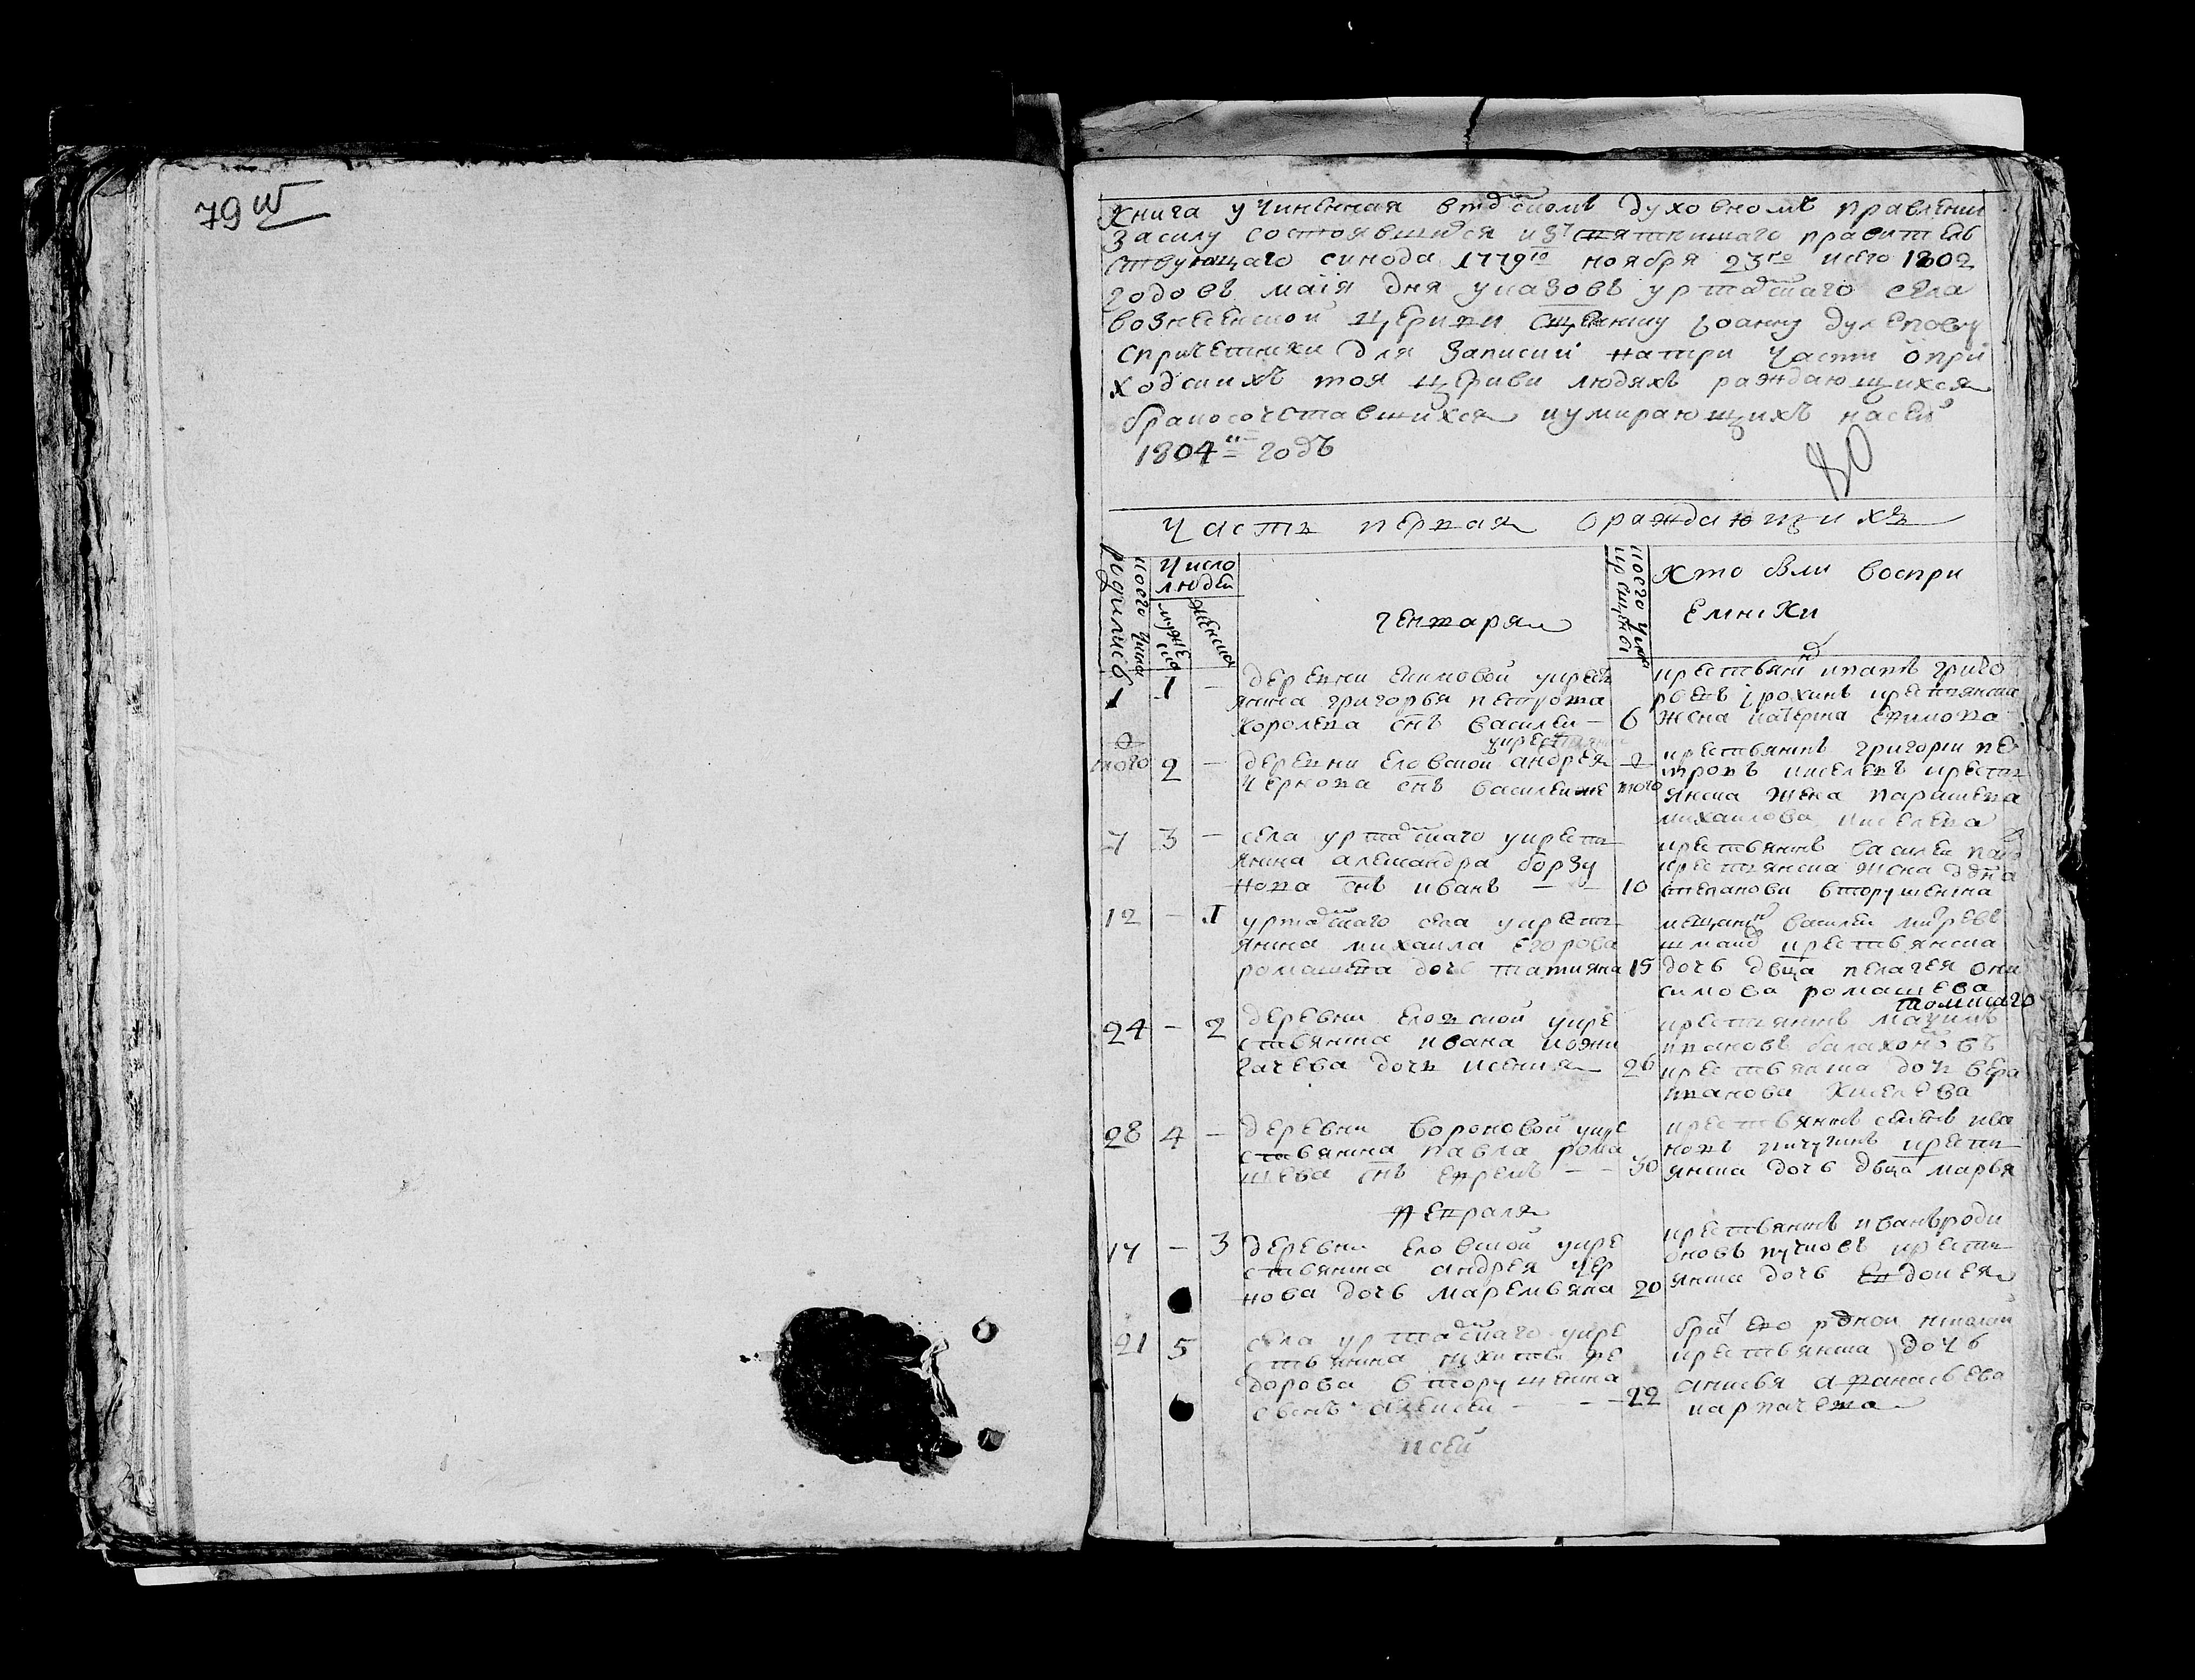 79 ш
Книга учиненная втд҇скомъ духовномъ правлении
Засилу состоявшихся изъ святѣишаго правитель
ствующаго синода 1779го ноября 23го исего 1802
годовъ маія дня указовъ уртад҇скаго села
вознесенской церкви сщ҇еннику Iоанну дулепову
спричетники для Записки натри части опри
ходскихъ тоя церкви людяхъ раждающихся
бракосочетавшихся иумирающихъ насеи
1804и годъ
80
Часть первая ораждающихъ
коего числа родились
Число людей
мужеска
женска
генваря
коего числа крещены
Кто были воспри
емники
1 1 — деревни екимовой укресть
янина григорья петрова
королева сн҃ъ василеи — 6
крестьянинъ григо
рьевъ ерохинъ крестьянска
жена катерина екимова
того 2 — деревни еловской андрея укрестьянина
Чернова сн҃ъ василеиже того
крестьянинъ григореи пе
тровъ киселевъ кресть
янска жена парасковья
михаилова киселева
7 3 — села уртад҇скаго укресть
янина александра борзу
нова сн҃ъ иванъ — — 10
крестьянинъ василеи
крестьянска жена
степанова вторушенка
12 — 1 уртад҇скаго села укресть
янина михаила Егорова
ромашева дочь татияна 15
мещанинъ василеи
крестьянска
дочь двца пелагея они
симова ромашева
24 — 2 деревни еловской укре
стьянина ивана
гачева дочь ксения 26
томскаго
крестьянинъ
ивановъ балахоновъ
крестьянска дочь вера
иванова Киселева
28 4 — деревни вороновой укре
стьянина павла рома
шева сн҃ъ ефремъ — — 30
крестьянинъ семенъ ива
новъ пичугинъ кресть
янска дочь двца марья
февраля
17 — 3 деревни еловской укре
стьянина андрея чер
нова дочь маремьяна 20
крестьянинъ иванъ роди
оновъ кресть
янска дочь евдокея
21 5 села уртад҇скаго укре
стьянина никиты фе
дорова вторушенка
сынъ алексеи — — — 22
братъ его родной николаи
крестьянска дочь
анисья афанасьева
карпачева
исеи